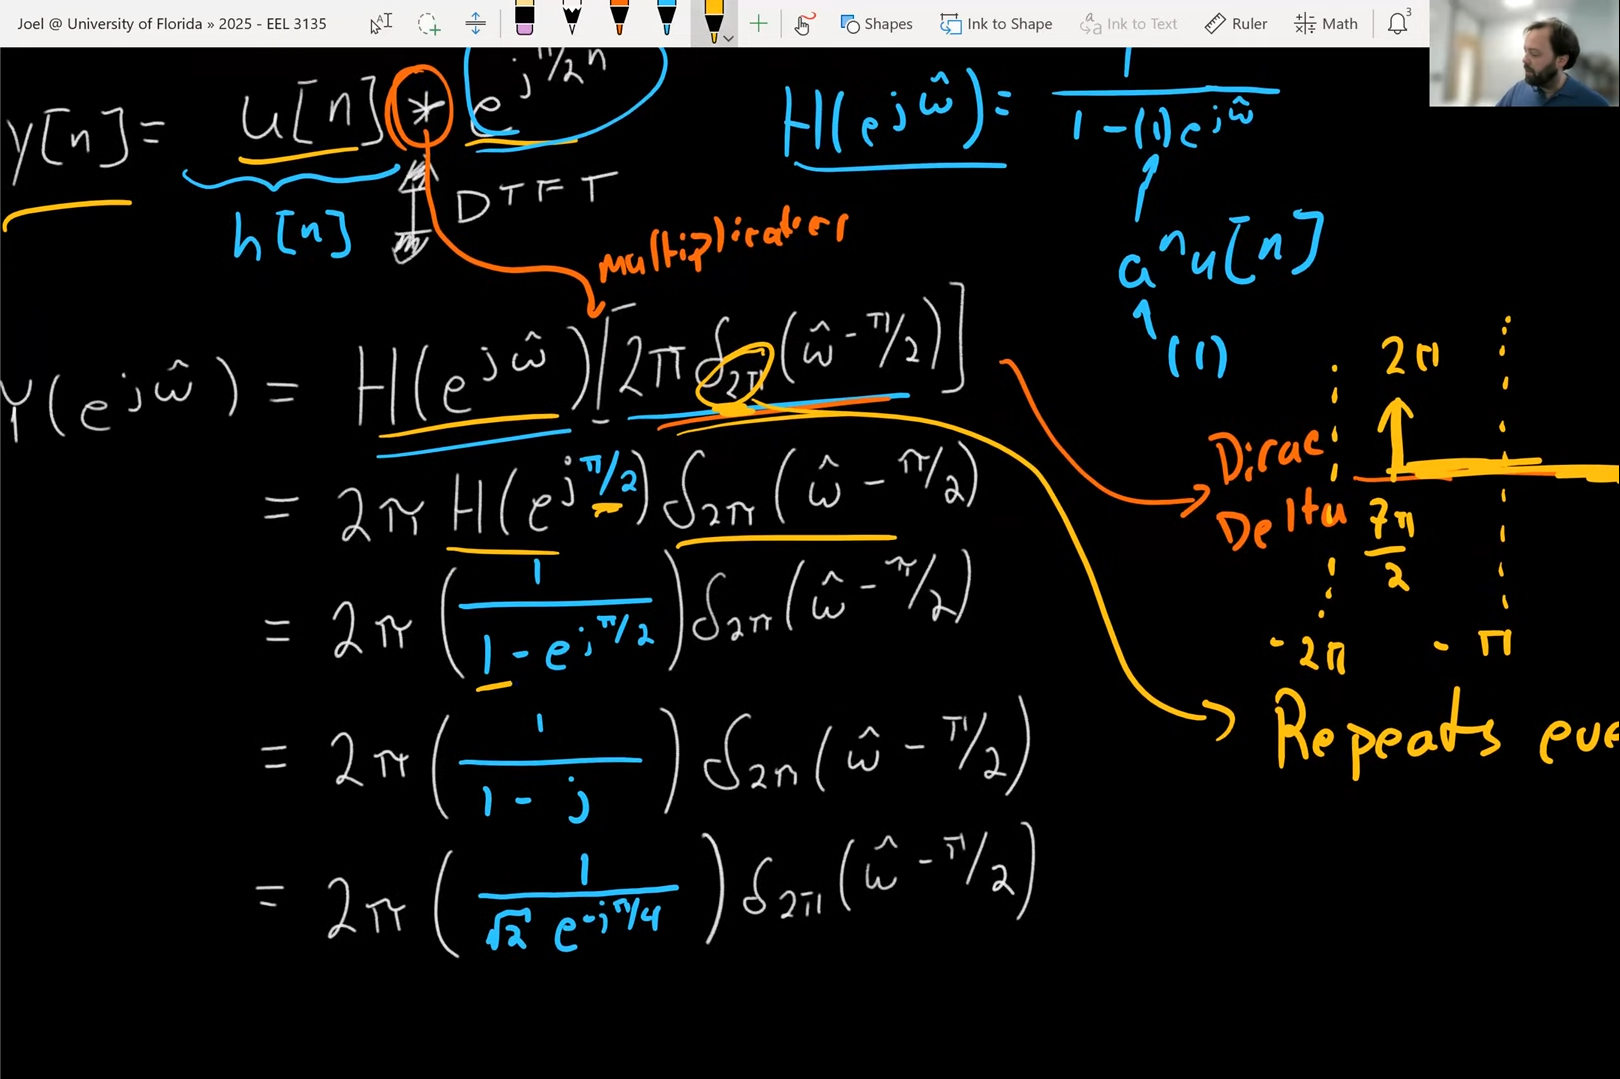 Joel @ University of Florida » 2025 - EEL 3135
Shapes
Ink to Shape
Ink to Text
Ruler
Math
3
y[n] = u[n] * e^{jπ/2 n}
h[n]
DTFT
H(e^{jω̂}) = 1 / (1 - (1)e^{jω̂})
a^n u[n]
(1)
Y(e^{jω̂}) = H(e^{jω̂})[2π δ_{2π}(ω̂ - π/2)]
= 2π H(e^{jπ/2}) δ_{2π}(ω̂ - π/2)
= 2π (1 / (1 - e^{jπ/2})) δ_{2π}(ω̂ - π/2)
= 2π (1 / (1 - j)) δ_{2π}(ω̂ - π/2)
= 2π (1 / (√2 e^{-jπ/4})) δ_{2π}(ω̂ - π/2)
Dirac
Delta
2π
7π/2
-2π
-π
Repeats